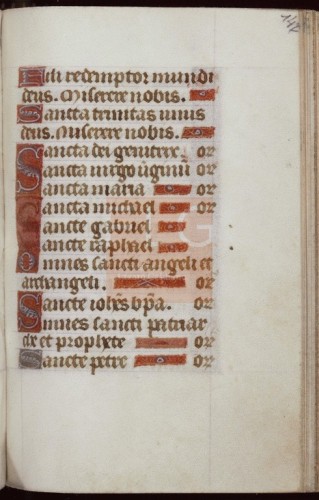 142
Fili redemptor mundi
deus. Miserere nobis.
Sancta trinitas unus
deus. Miserere nobis.
Sancta dei genitrix. or
Sancta virgo virginū or
Sancta maria or
Sancta michael or
Sancte gabriel or
Sancte raphael or
Omnes sancti angeli et
archangeli. or
Sancte iohēs bpa. or
Omnes sancti patriar
che et prophete or
Sancte petre or